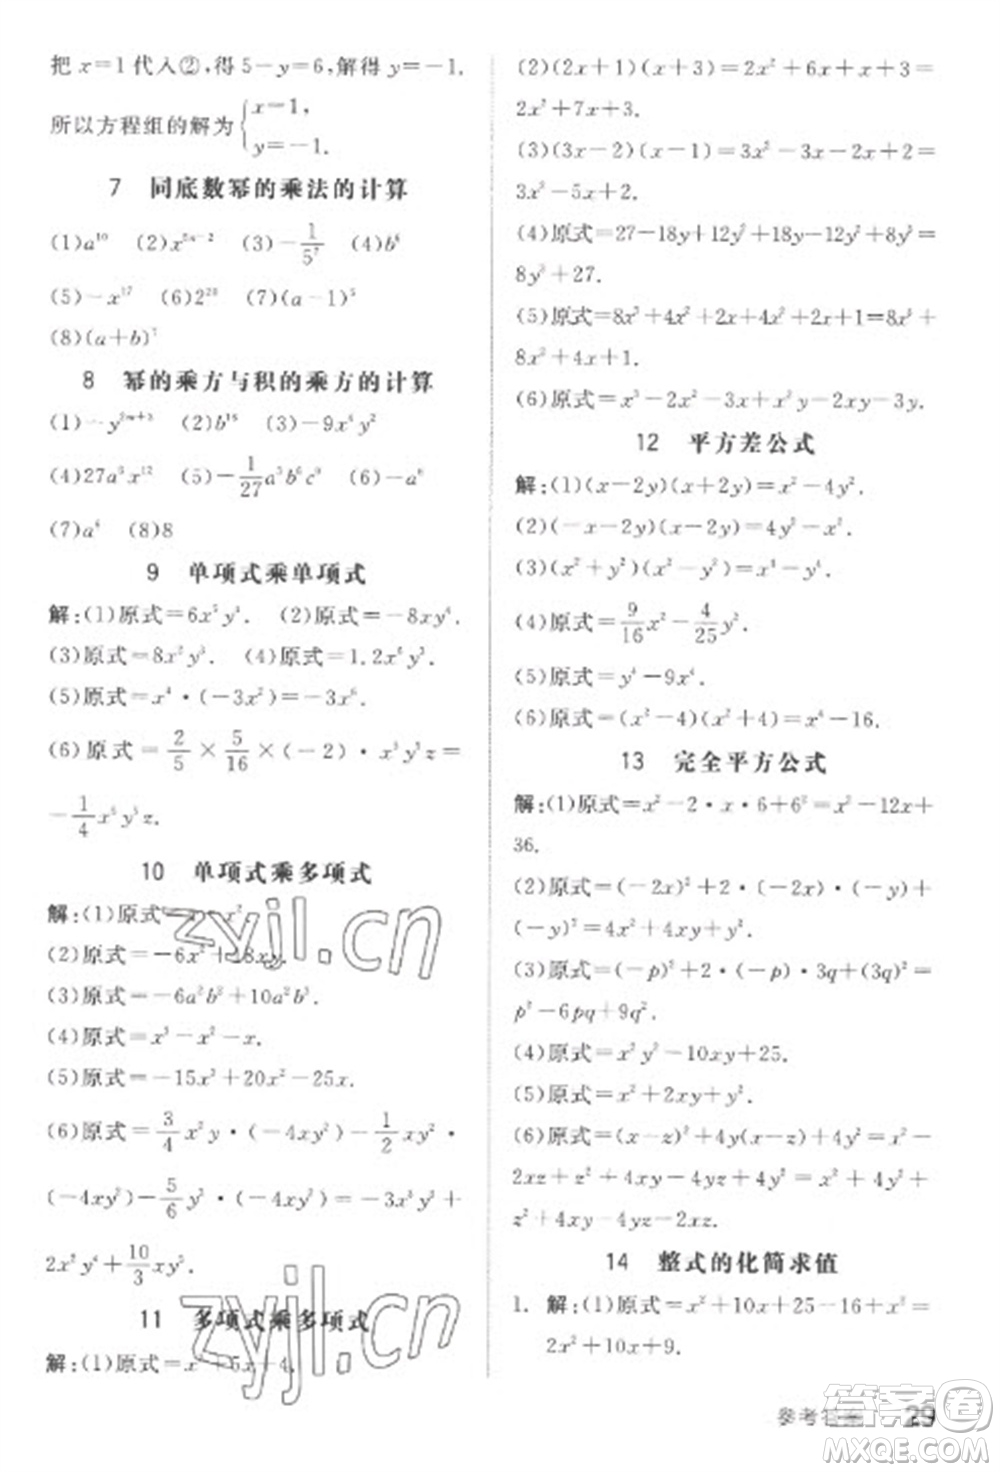 把 x=1 代入②,得 5-y=6,解得 y=-1.
所以方程组的解为 {x=1,
y=-1.
7 同底数幂的乘法的计算
(1)a¹⁰ (2)x²ⁿ⁻² (3)-1/5⁷ (4)b⁶
(5)-x¹⁷ (6)2²⁰ (7)(a-1)⁵
(8)(a+b)⁷
8 幂的乘方与积的乘方的计算
(1)-y²ᵐ⁺³ (2)b¹⁵ (3)-9x⁴y²
(4)27a⁶x¹² (5)-1/27a³b⁶c⁹ (6)-a⁶
(7)a⁶ (8)8
9 单项式乘单项式
解:(1)原式=6x⁵y⁴. (2)原式=-8xy⁴.
(3)原式=8x²y⁵. (4)原式=1.2x⁶y⁵.
(5)原式=x⁴·(-3x²)=-3x⁶.
(6)原式=2/5×5/16×(-2)·x⁵y⁵z=
-1/4x⁵y⁵z.
10 单项式乘多项式
解:(1)原式=x-x².
(2)原式=-6x²+18xy.
(3)原式=-6a²b³+10a²b³.
(4)原式=x³-x²-x.
(5)原式=-15x³+20x²-25x.
(6)原式=3/4x²y·(-4xy²)-1/2·
(-4xy²)-5/6y³·(-4xy²)=-3x³y³+
2x²y⁴+10/3xy⁵.
11 多项式乘多项式
解:(1)原式=x²+5x+4.
(2)(2x+1)(x+3)=2x²+6x+x+3=
2x²+7x+3.
(3)(3x-2)(x-1)=3x²-3x-2x+2=
3x²-5x+2.
(4)原式=27-18y+12y²+18y-12y²+8y³=
8y³+27.
(5)原式=8x³+4x²+2x+4x²+2x+1=8x³+
8x²+4x+1.
(6)原式=x³-2x²+3x+x²y-2xy-3y.
12 平方差公式
解:(1)(x-2y)(x+2y)=x²-4y².
(2)(-x-2y)(x-2y)=4y²-x².
(3)(x²+y²)(x²-y²)=x⁴-y⁴.
(4)原式=9/16x²-4/25y².
(5)原式=y⁴-9x⁴.
(6)原式=(x²-4)(x²+4)=x⁴-16.
13 完全平方公式
解:(1)原式=x²-2·x·6+6²=x²-12x+
36.
(2)原式=(-2x)²+2·(-2x)·
(-y)+(-y)²=4x²+4xy+y².
(3)原式=(-p)²+2·(-p)·3q+(3q)²=
p²-6pq+9q².
(4)原式=x²y²-10xy+25.
(5)原式=4x²+4xy+y².
(6)原式=(x-z)²+4y(x-z)+4y²=x²-
2xz+z²+4xy-4yz+4y²=x²+4y²+
z²+4xy-4yz-2xz.
14 整式的化简求值
1. 解:(1)原式=x²+10x+25-16+x²=
2x²+10x+9.
参考答案 29
答案圈
MXQE.COM
zyjl.cn
zyjl.cn